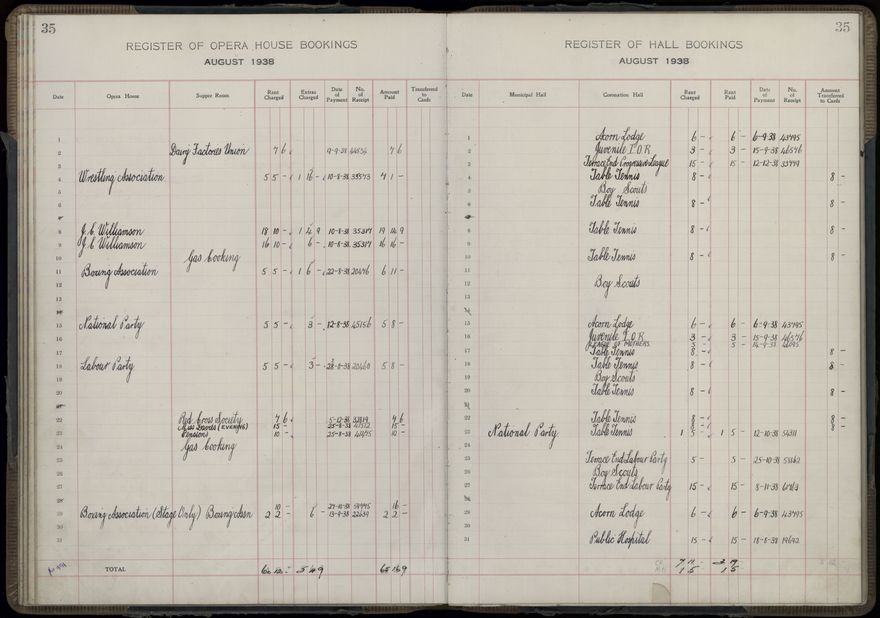 35
REGISTER OF OPERA HOUSE BOOKINGS
AUGUST 1938
Date Opera House Supper Room Rent Charged Extras Charged Date of Payment No. of Receipt Amount Paid Transferred to Cards
1
2 Dairy Factories Union 7 6 9-9-38 7 6
3
4 Wrestling Association 5 5 - 1 16 - 10-8-38 35373
5
6
8 J. C. Williamson 18 10 - 1 4 9 10-8-38 35317 19 14 9
9 J. C. Williamson 16 10 - 6 - 10-8-38 35317 16 16 -
10 Gas Cooking
11 Boxing Association 5 5 - 1 6 - 22-8-38 20446 6 11 -
12
13
15 National Party 5 5 - 3 - 12-8-38 45156 5 8 -
16
17
18 Labour Party 5 5 - 3 - 28-8-38 20460 5 8 -
19
20
22 Red Cross Society 7 6 5-12-38 4 6
23 Miss Davies (Evening) 15 - 15 -
Pensions 10 - 25-8-38 10 -
24 Gas Cooking
25
26
27
10 - 27-10-38 16 -
29 Boxing Association (Stage Only) Boxing Assn 2 2 - 6 - 13-9-38 22639 2 2 -
30
31
TOTAL 5 4 9
35
REGISTER OF HALL BOOKINGS
AUGUST 1938
Date Municipal Hall Coronation Hall Rent Charged Rent Paid Date of Payment No. of Receipt Amount Transferred to Cards
1 Acorn Lodge 6 - 6 - 6-9-38 43495
2 Juvenile I.O.R. 3 - 3 - 15-9-38 46576
3 Terrace End Progressive League 15 - 15 - 12-12-38 33799
4 Table Tennis 8 - 8 -
5 Boy Scouts
6 Table Tennis 8 - 8 -
8 Table Tennis 8 - 8 -
9
10 Table Tennis 8 - 8 -
11
12 Boy Scouts
13
15 Acorn Lodge 6 - 6 - 6-9-38 43495
16 Juvenile I.O.R. 3 - 3 - 15-9-38 46576
League of Mothers 5 - 5 -
17 Table Tennis 8 - 8 -
18 Table Tennis 8 - 8 -
19 Boy Scouts
20 Table Tennis 8 - 8 -
22 Table Tennis 8 - 8 -
8 - 8 -
23 National Party Table Tennis 1 5 - 1 5 - 12-10-38
24
25 Terrace End Labour Party 5 - 5 - 25-10-38
26 Boy Scouts
27 Terrace End Labour Party 15 - 15 - 8-11-38
29 Acorn Lodge 6 - 6 - 6-9-38 43495
30
31 Public Hospital 15 - 15 - 18-8-38 19692
7 11 -
1 5 1 5